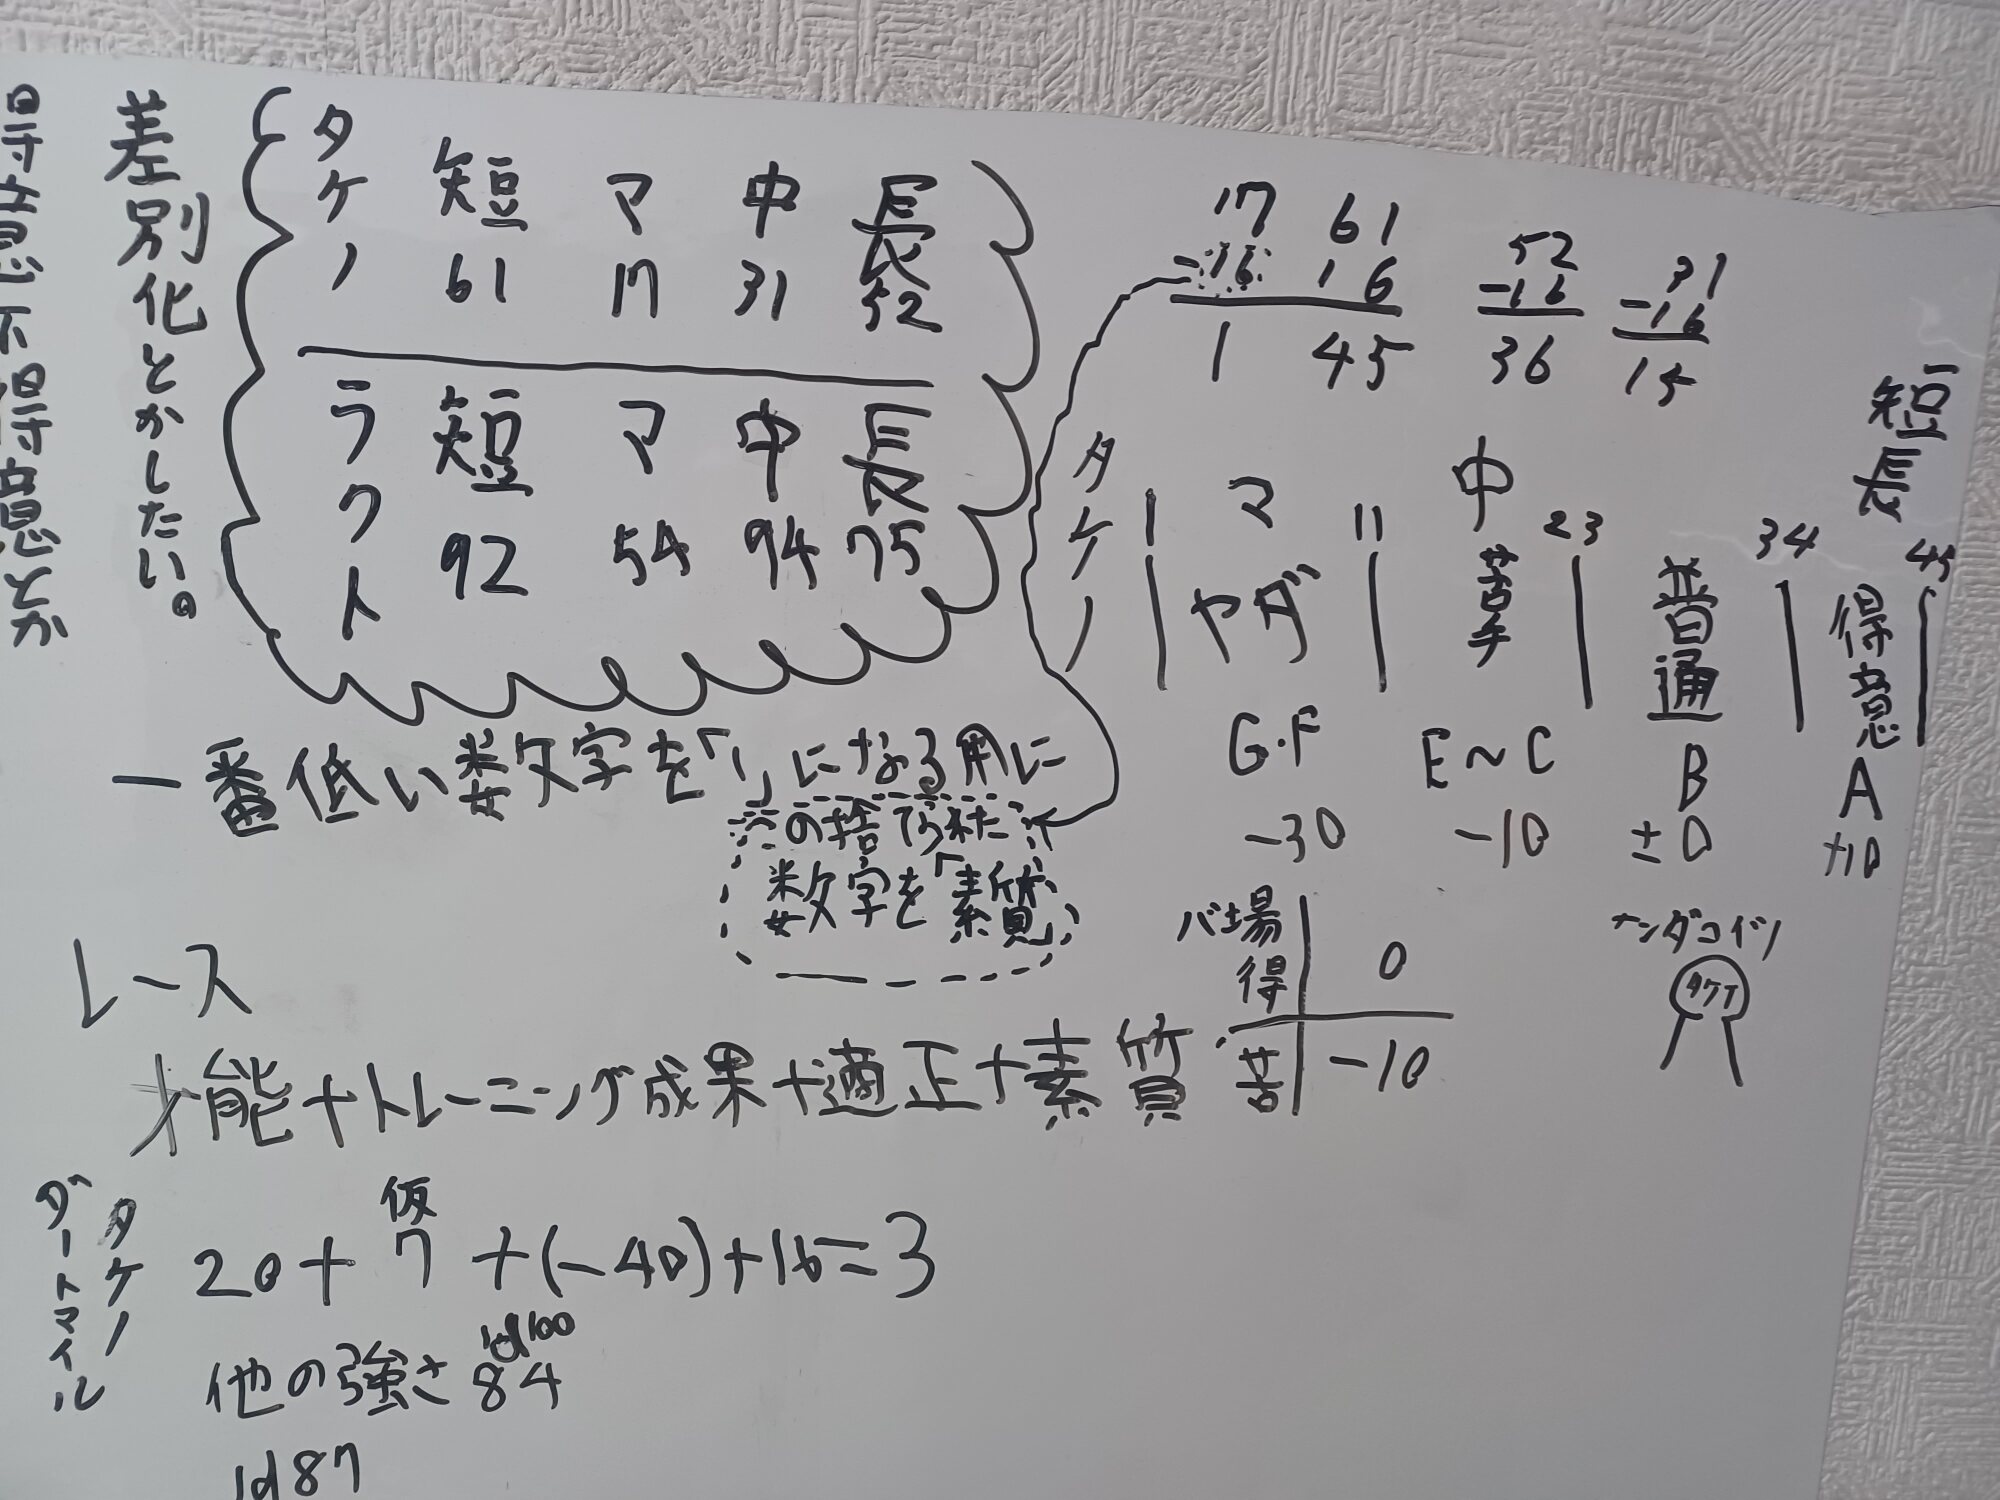 得意不得意とか
差別化とかしたい。
タケノ 短 マ 中 長
61 17 31 52
ラクト 短 マ 中 長
92 54 94 75
17 61 52 31
-16 16 -16 -16
1 45 36 15
タケノ マ 中 短長
1 11 23 34 45
ヤダ 苦手 普通 得意
G・F E~C B A
-30 -10 ±0 +10
一番低い数文字を「1」になる用に
の捨てられた
数文字を「素質」
バ場
得 0
苦 -10
ナンダコイツ
レース
才能+トレーニング成果+適正+素質
タケノ
ダートマイル
仮
20+7+(-40)+16=3
1d100
他の強さ 84
1d87